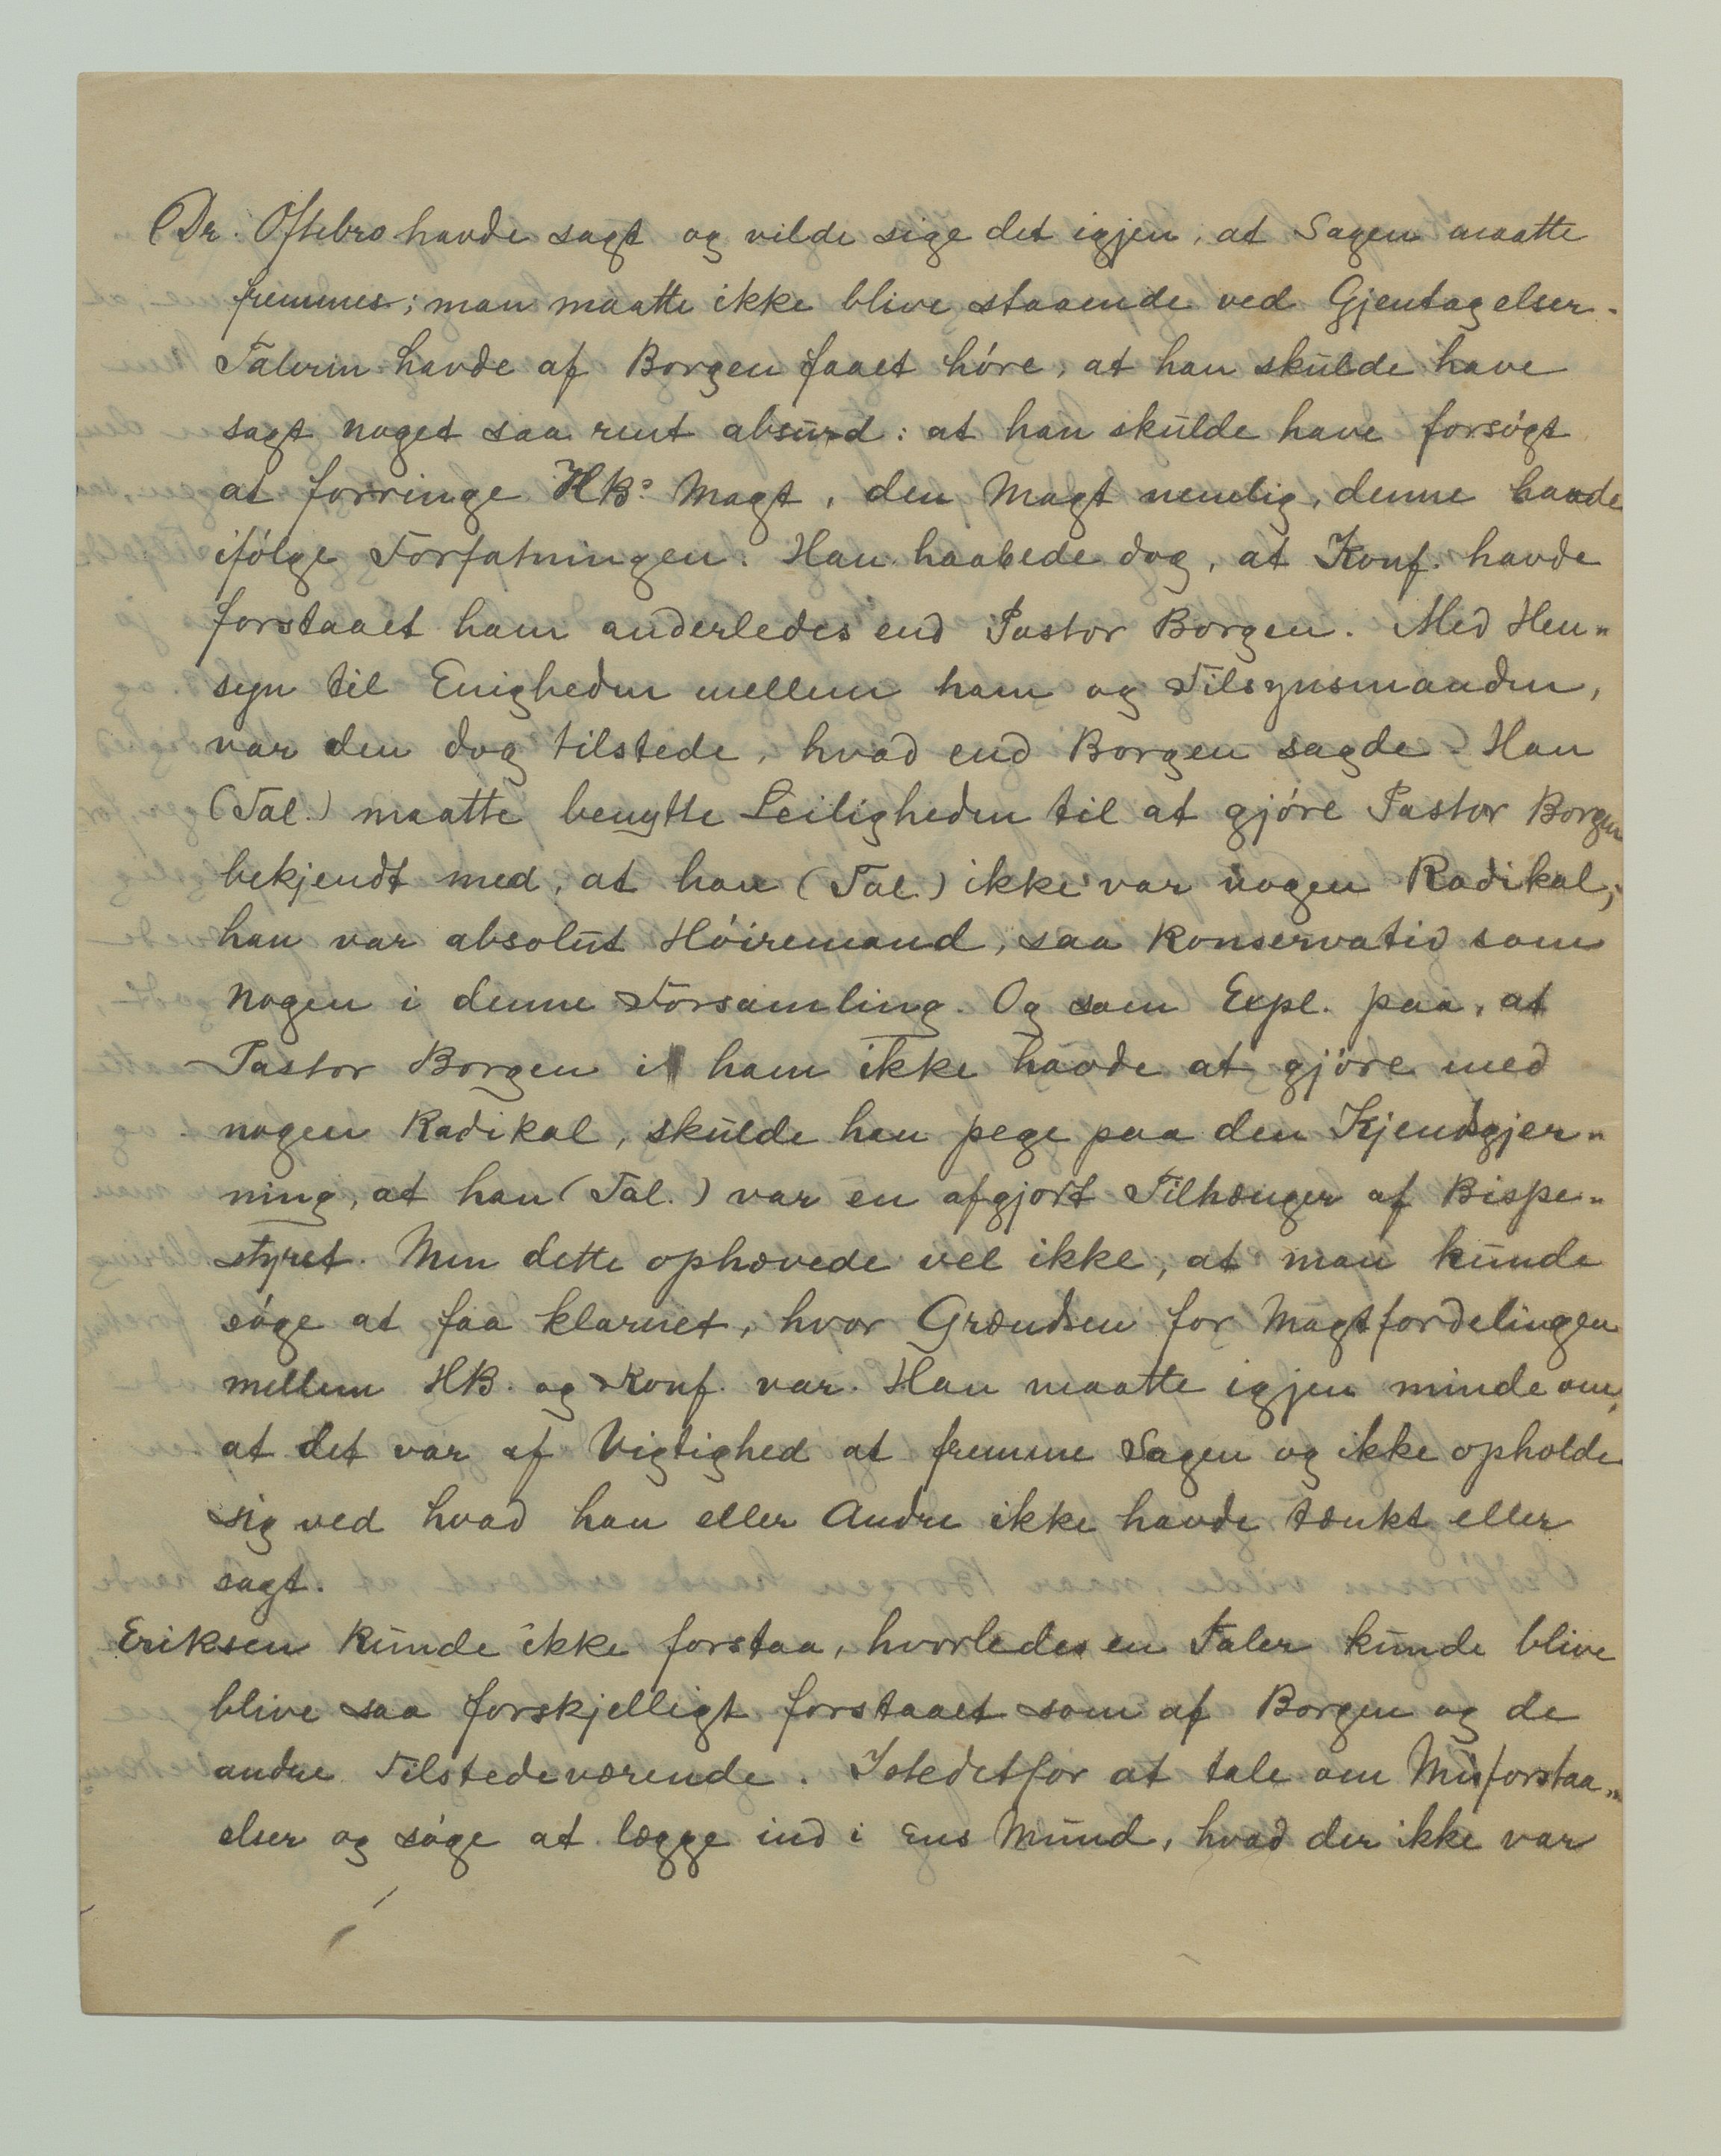 Dr. Oftebro havde sagt og vilde sige det igjen, at Sagen maatte
fremmes; man maatte ikke blive staaende ved Gjentagelser.
Taleren havde af Borgen faaet høre, at han skulde have
sagt noget saa rent absurd: at han skulde have forsøgt
at forringe HBs Magt, den Magt nemlig, denne havde
ifølge Forfatningen. Han haabede dog, at Konf. havde
forstaaet ham anderledes end Pastor Borgen. Med Hen-
syn til Enigheden mellem ham og Tilsynsmanden,
var den dog tilstede, hvad end Borgen sagde. Han
(Tal.) maatte benytte Leiligheden til at gjøre Pastor Borgen
bekjendt med, at han (Tal.) ikke var nogen Radikal;
han var absolut Høiremand, saa konservativ som
nogen i denne Forsamling. Og som Expl. paa, at
Pastor Borgen i ham ikke havde at gjøre med
nogen Radikal, skulde han pege paa den Kjendsgjer-
ning, at han (Tal.) var en afgjort Tilhænger af Bispe-
styret. Men dette ophævede vel ikke, at man kunde
søge at faa klarnet, hvor Grændsen for Magtfordelingen
mellem HB. og Konf. var. Han maatte igjen minde om,
at det var af Vigtighed at fremme Sagen og ikke opholde
sig ved hvad han eller Andre ikke havde tænkt eller
sagt.
Eriksen kunde ikke forstaa, hvorledes en Taler kunde blive
blive saa forskjelligt forstaaet som af Borgen og de
andre Tilstedeværende. Istedetfor at tale om Misforstaa-
elser og søge at lægge ind i Ens Mund, hvad der ikke var